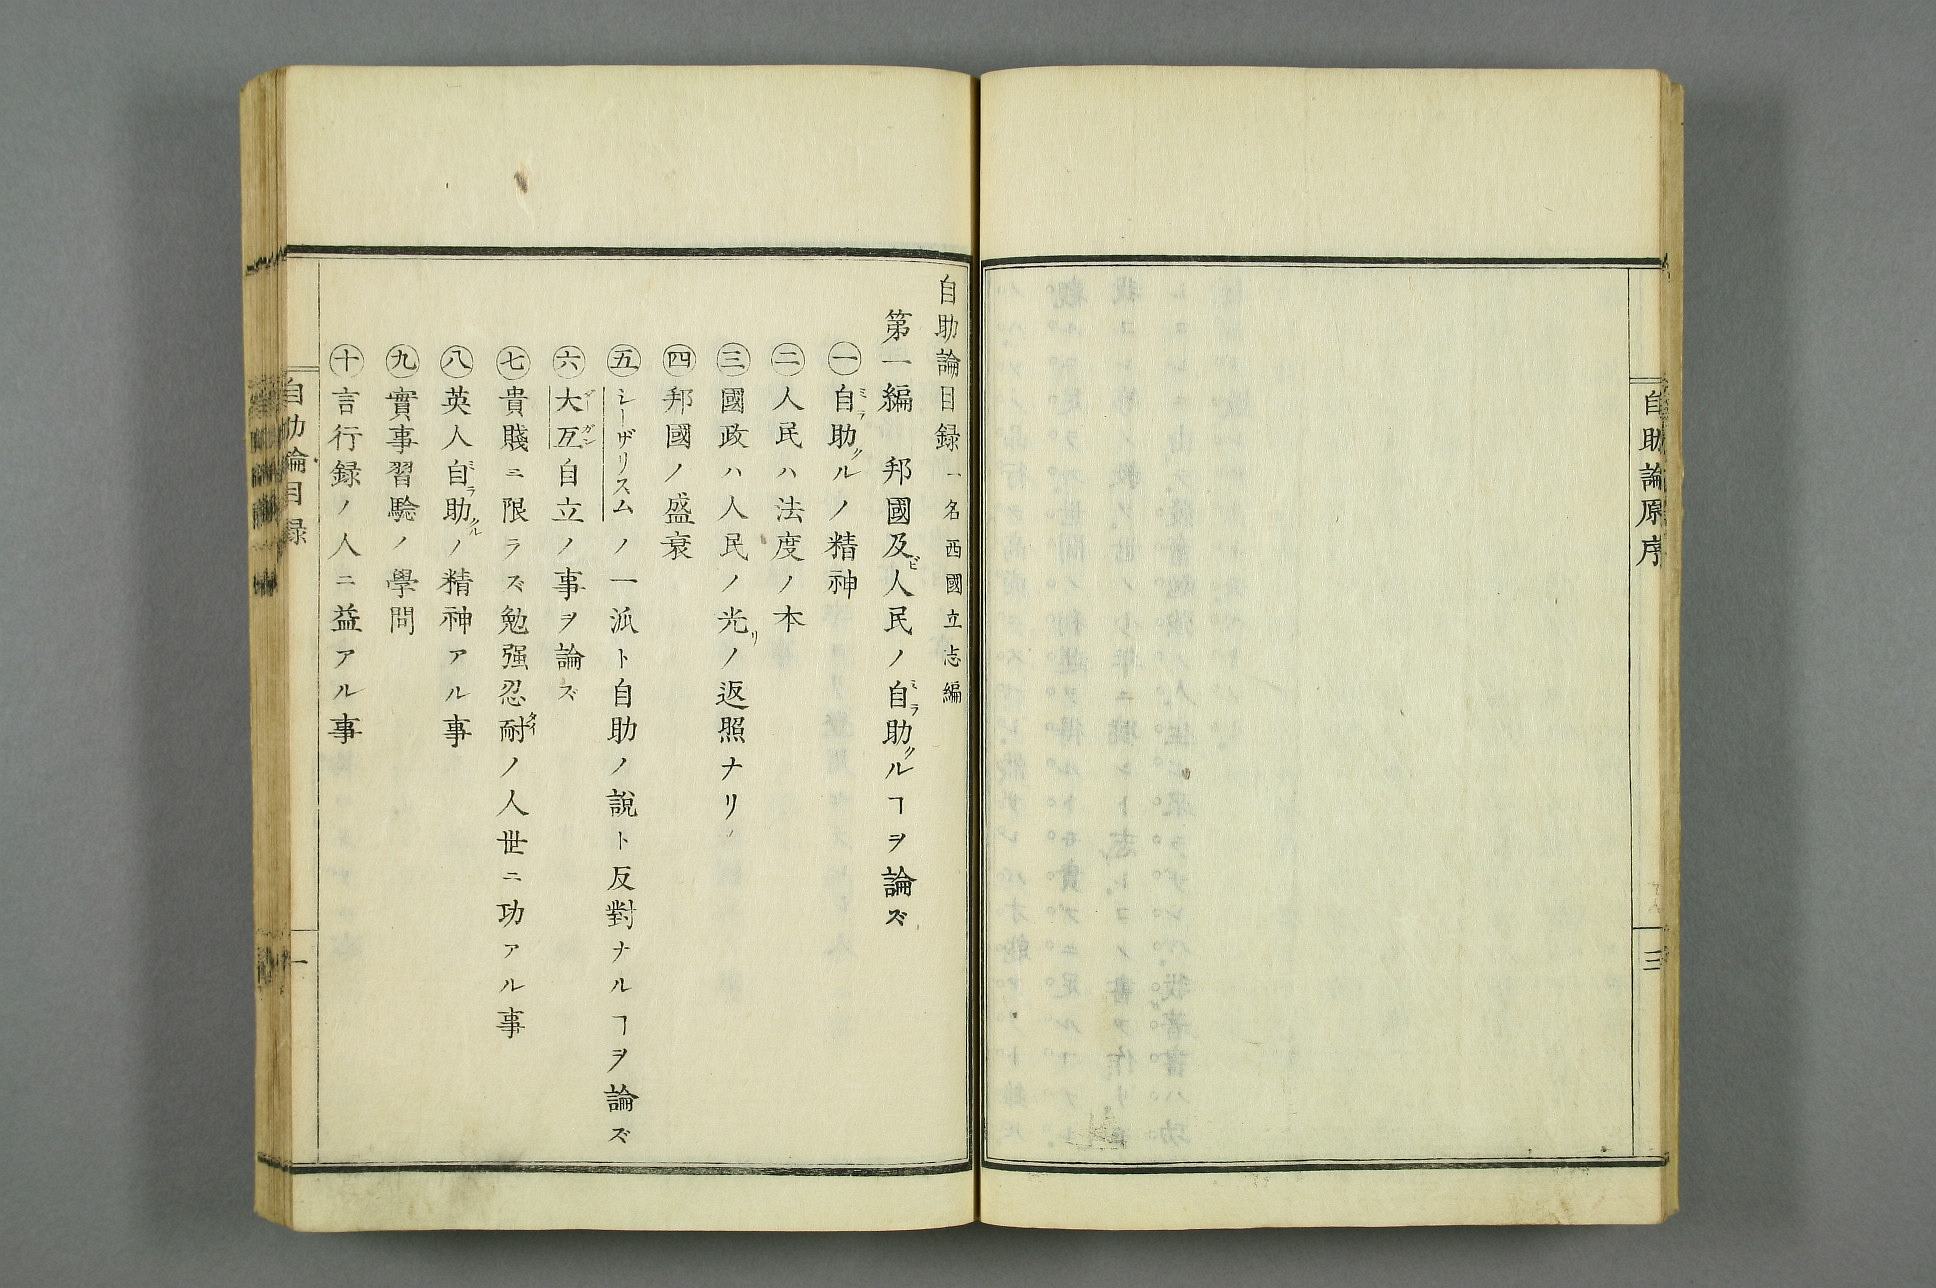 自助論原序
三
自助論目録 一名西國立志編
第一編 邦國及ビ人民ノ自ラ助クルヿヲ論ズ
㊀自ラ助クルノ精神
㊁人民ハ法度ノ本
㊂國政ハ人民ノ光リノ返照ナリ
㊃邦國ノ盛衰
㊄シーザリスムノ一派ト自助ノ說ト反對ナルヿヲ論ズ
㊅大瓦自立ノ事ヲ論ズ
㊆貴賤ニ限ラズ勉强忍耐ノ人世ニ功アル事
㊇英人自ラ助クルノ精神アル事
㊈實事習驗ノ學問
㊉言行録ノ人ニ益アル事
自助論目録
一